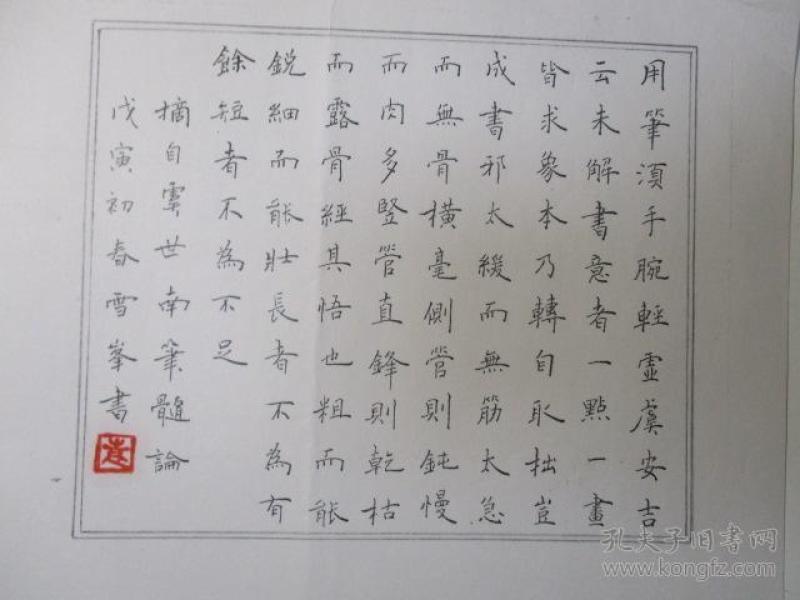 用筆須手腕輕虛虞安吉
云未解書意者一點一畫
皆求象本乃轉自取拙豈
成書邪太緩而無筋太急
而無骨橫毫側管則鈍慢
而肉多竪管直鋒則乾枯
而露骨經其悟也粗而能
銳細而能壯長者不為有
餘短者不為不足
摘自虞世南筆髓論
戊寅初春雪峯書
孔夫子旧书网
www.kongfz.com